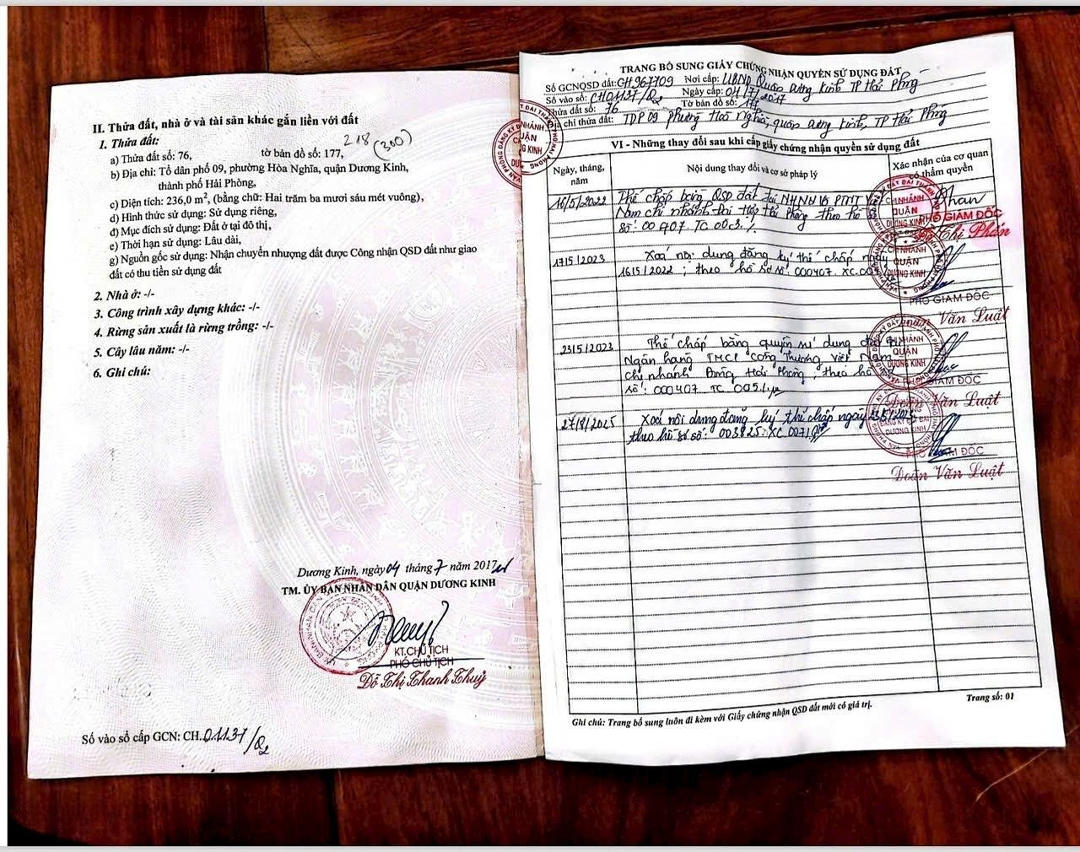 II. Thửa đất, nhà ở và tài sản khác gắn liền với đất
1. Thửa đất:
218
(300)
a) Thửa đất số: 76, tờ bản đồ số: 177,
b) Địa chỉ: Tổ dân phố 09, phường Hòa Nghĩa, quận Dương Kinh,
thành phố Hải Phòng,
c) Diện tích: 236,0 m², (bằng chữ: Hai trăm ba mươi sáu mét vuông),
d) Hình thức sử dụng: Sử dụng riêng,
đ) Mục đích sử dụng: Đất ở tại đô thị,
e) Thời hạn sử dụng: Lâu dài,
g) Nguồn gốc sử dụng: Nhận chuyển nhượng đất được Công nhận QSD đất như giao
đất có thu tiền sử dụng đất
2. Nhà ở: -/-
3. Công trình xây dựng khác: -/-
4. Rừng sản xuất là rừng trồng: -/-
5. Cây lâu năm: -/-
6. Ghi chú:
Dương Kinh, ngày 04 tháng 7 năm 2017
TM. ỦY BAN NHÂN DÂN QUẬN DƯƠNG KINH
KT.CHỦ TỊCH
PHÓ CHỦ TỊCH
Đỗ Thị Thanh Thuỷ
Số vào sổ cấp GCN: CH.01137/Q2
TRANG BỔ SUNG GIẤY CHỨNG NHẬN QUYỀN SỬ DỤNG ĐẤT
Số GCNQSD đất: CH 967709 Nơi cấp: UBND Quận Dương Kinh TP Hải Phòng
Số vào sổ: CH01137/Q2 Ngày cấp: 04/7/2017
Thửa đất số: 76 Tờ bản đồ số: 177
Địa chỉ thửa đất: TDP 09 phường Hoà Nghĩa, quận Dương Kinh, TP Hải Phòng
VI - Những thay đổi sau khi cấp giấy chứng nhận quyền sử dụng đất
Ngày, tháng, năm
Nội dung thay đổi và cơ sở pháp lý
Xác nhận của cơ quan có thẩm quyền
16/5/2022 Thế chấp bằng QSD đất tại NHNN & PTNT Việt
Nam chi nhánh Đại Hợp Hải Phòng theo hồ sơ
số: 00407. TC.
PHÓ GIÁM ĐỐC
17/5/2023 Xoá nội dung đăng ký thế chấp ngày
16/5/2022; theo hồ sơ số: 000407. XC.
PHÓ GIÁM ĐỐC
Văn Luật
23/5/2023 Thế chấp bằng quyền sử dụng đất tại
Ngân hàng TMCP Công Thương Việt Nam
chi nhánh Đông Hải Phòng; theo hồ sơ
số: 000407. TC.
GIÁM ĐỐC
Đoàn Văn Luật
27/8/2025 Xoá nội dung đăng ký thế chấp ngày 23/5/2023
theo hồ sơ số: 003825. XC.
PHÓ GIÁM ĐỐC
Đoàn Văn Luật
Trang số: 01
Ghi chú: Trang bổ sung luôn đi kèm với Giấy chứng nhận QSD đất mới có giá trị.